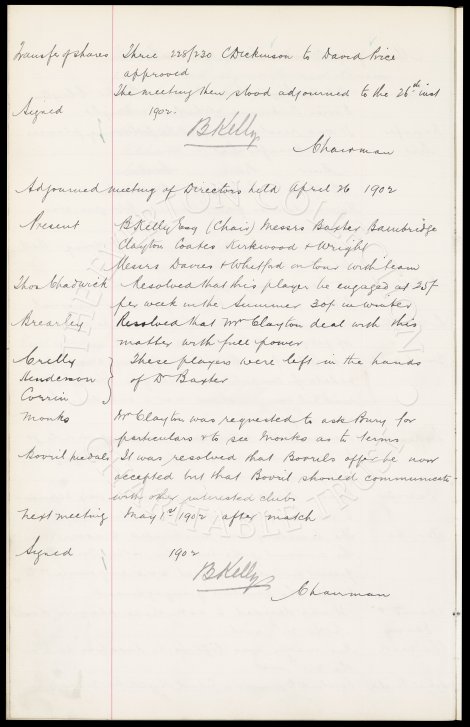 Transfer of shares Three 228/230 C Dickinson to David Price
approved
The meeting then stood adjourned to the 26th inst
Signed 1902.
B Kelly
Chairman
Adjourned meeting of Directors held April 26 1902
Present B Kelly Esq (Chair) Messrs Baxter Bainbridge
Clayton Coates Kirkwood & Wright
Messrs Davies & Whitford on tour with team
Thos Chadwick Resolved that this player be engaged at 25/-
per week in the Summer 30/- in winter
Brearley Resolved that Mr Clayton deal with this
matter with full power
Crelly These players were left in the hands
Henderson of Dr Baxter
Corrin
Monks Mr Clayton was requested to ask Bury for
particulars & to see Monks as to terms
Bovril medals It was resolved that Bovrils offer be now
accepted but that Bovril should communicate
with other interested clubs
Next meeting May 1st 1902 after match
Signed 1902
B Kelly
Chairman
THE EVERTON COLLECTION
CHARITABLE TRUST